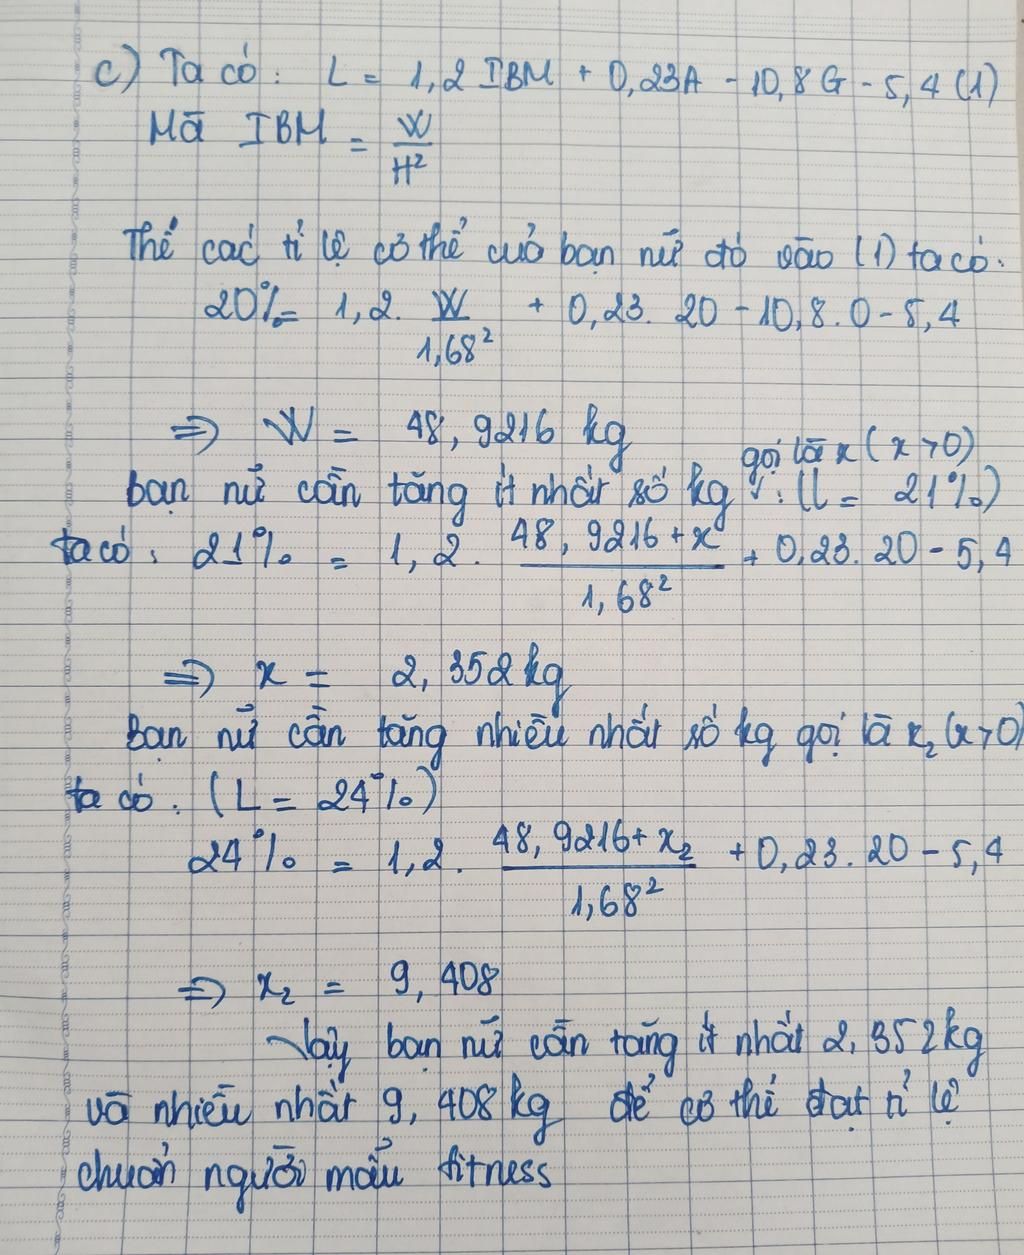 c) Ta có: L = 1,2 IBM + 0,23A - 10,8G - 5,4 (1)
Mà IBM = W/H²
Thế các tỉ lệ cơ thể của bạn nữ đó vào (1) ta có:
20% = 1,2. W/1,68² + 0,23. 20 - 10,8. 0 - 5,4
=> W = 48,9216 kg
gọi là x (x>0)
bạn nữ cần tăng ít nhất số kg : (L = 21%)
ta có: 21% = 1,2. (48,9216+x)/1,68² + 0,23. 20 - 5,4
=> x = 2,352kg
Bạn nữ cần tăng nhiều nhất số kg gọi là x₂ (x>0)
ta có: (L = 24%)
24% = 1,2. (48,9216+x₂)/1,68² + 0,23. 20 - 5,4
=> x₂ = 9,408
Vậy bạn nữ cần tăng ít nhất 2,352kg
và nhiều nhất 9,408kg để cơ thể đạt tỉ lệ
chuẩn người mẫu fitness